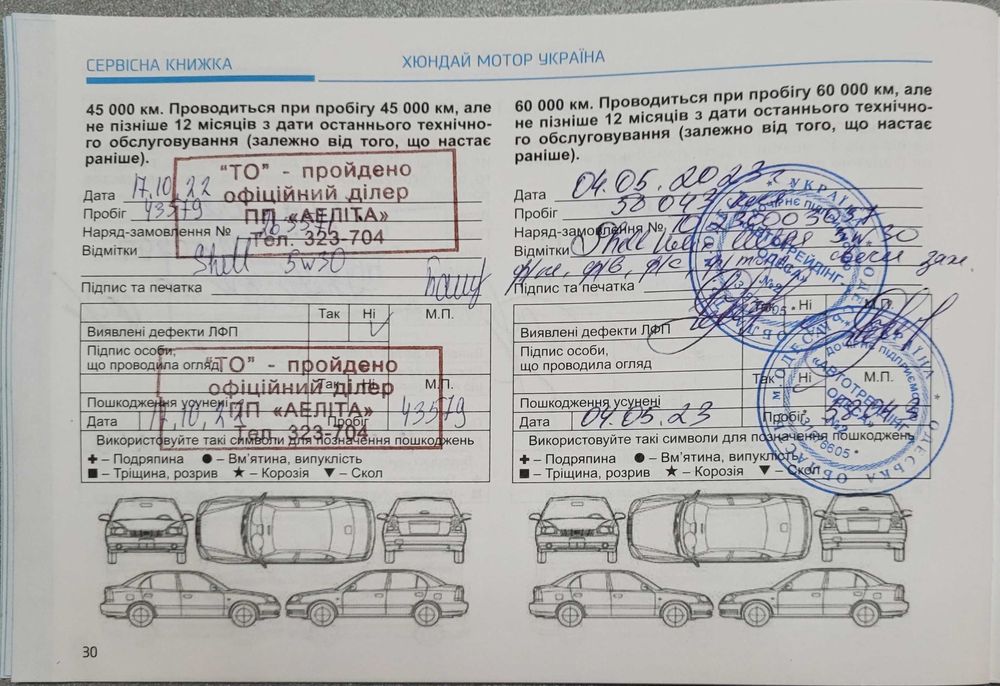 СЕРВІСНА КНИЖКА
ХЮНДАЙ МОТОР УКРАЇНА
45 000 км. Проводиться при пробігу 45 000 км, але
не пізніше 12 місяців з дати останнього технічно-
го обслуговування (залежно від того, що настає
раніше).
"ТО" - пройдено
офіційний ділер
ПП «АЕЛІТА»
Тел. 323-704
Дата 17,10,22
Пробіг 43579
Наряд-замовлення №
Відмітки
Shell 5w30
Підпис та печатка
Так Ні М.П.
Виявлені дефекти ЛФП
Підпис особи,
що проводила огляд
"ТО" - пройдено
офіційний ділер
ПП «АЕЛІТА»
Тел. 323-704
Так Ні М.П.
Пошкодження усунені
Дата 17,10,22 Пробіг 43579
Використовуйте такі символи для позначення пошкоджень
– Подряпина – Вм'ятина, випуклість
– Тріщина, розрив – Корозія – Скол
60 000 км. Проводиться при пробігу 60 000 км, але
не пізніше 12 місяців з дати останнього технічно-
го обслуговування (залежно від того, що настає
раніше).
Дата 04.05.2023
Пробіг 58043
Наряд-замовлення №
Відмітки Shell 5w30
Підпис та печатка
Так Ні М.П.
Виявлені дефекти ЛФП
Підпис особи,
що проводила огляд
Так Ні М.П.
Пошкодження усунені
Дата 04.05.23 Пробіг 58043
Використовуйте такі символи для позначення пошкоджень
– Подряпина – Вм'ятина, випуклість
– Тріщина, розрив – Корозія – Скол
30